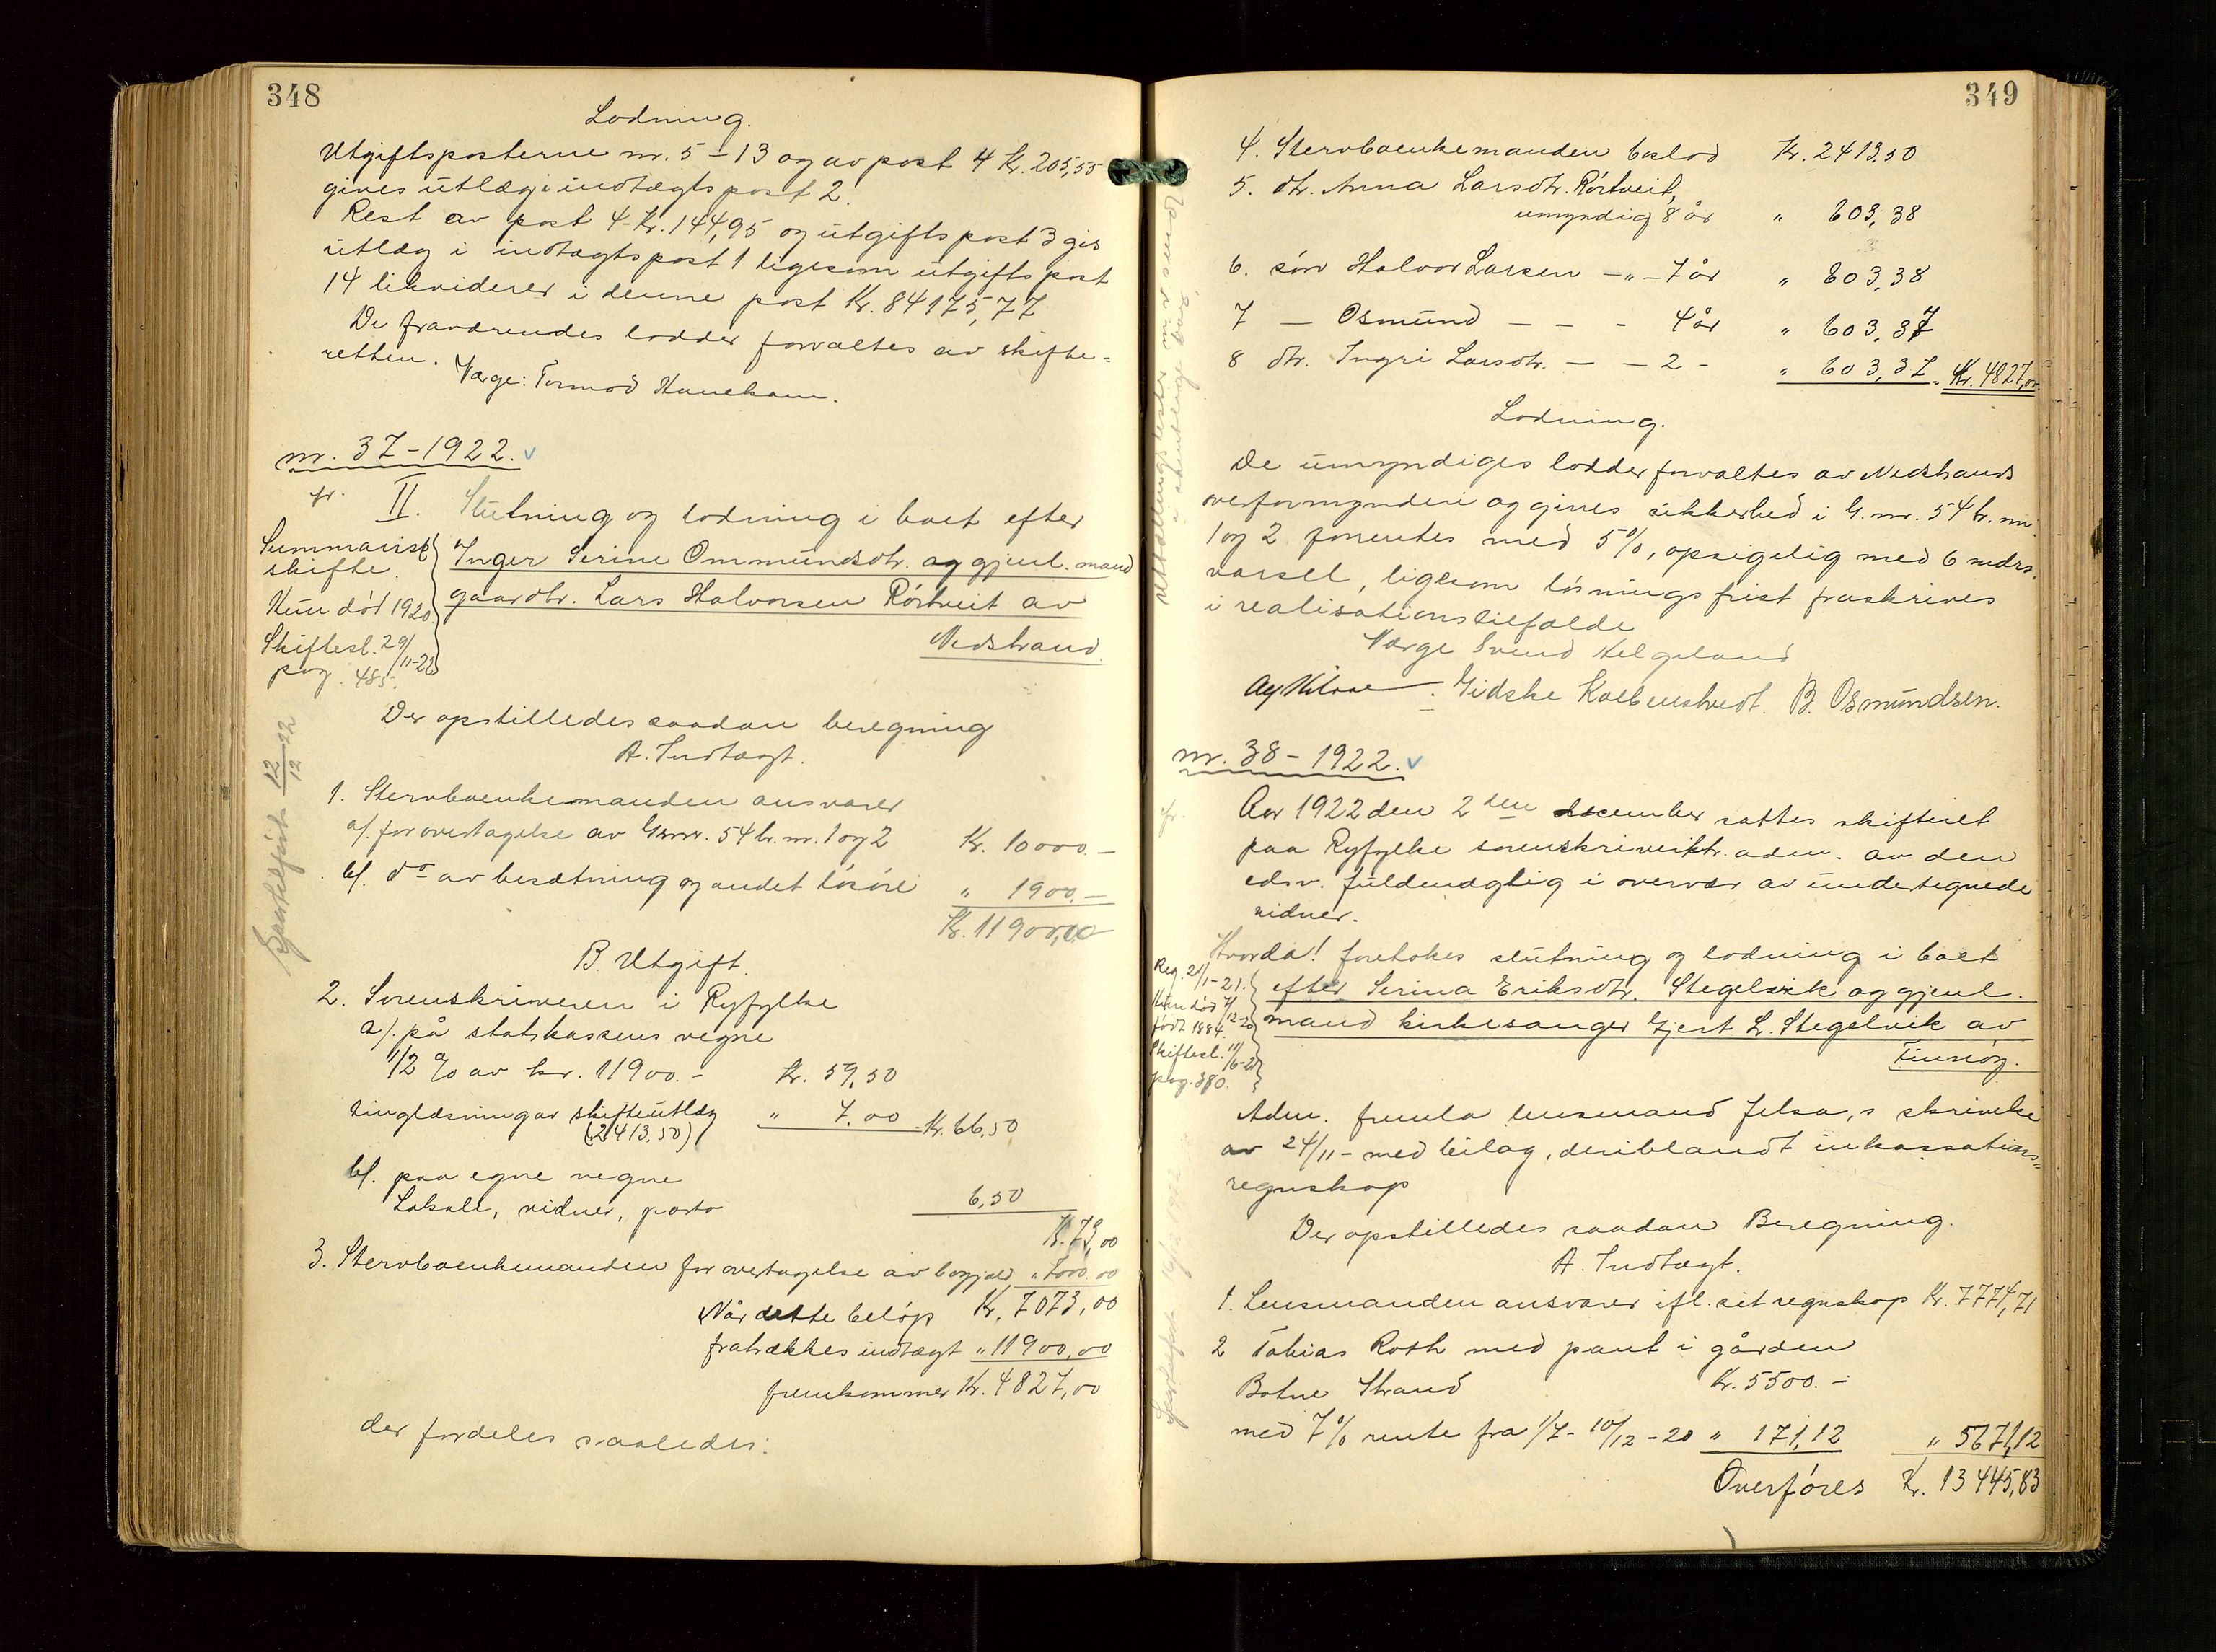 348
Lodning.
Utgiftsposterne nr. 5-13 og av post 4 Kr. 205,55
gives utlæg i indtægtspost 2.
Rest av post 4 Kr. 144,95 og utgiftspost 3 gis
utlæg i indtægtspost 1 ligesom utgiftspost
14 likviderer i denne post Kr. 84175,77
De fraværendes lodder forvaltes av skifte-
retten. Værge: Tormod Haneham.
nr. 37-1922.
fr. II. Slutning og lodning i boet efter
Inger Serine Ommundsdtr. og gjenl. mand
gaardbr. Lars Halvorsen Rörtveit av
Nedstrand.
Summarisk
skifte.
Hun död 1920.
Skiftesl. 29/11-22
pag. 485.
Der opstilledes saadan beregning
A. Indtægt.
1. Stervboenkemanden ansvarer
a/. for overtagelse av Gr.nr. 54 br. nr. 1 og 2 Kr. 10000.-
b/. do av besætning og andet lösöre " 1900.-
Kr. 11900,00
B. Utgift.
2. Sorenskriveren i Ryfylke
a/. på statskassens vegne
1/2 % av kr. 11900.- Kr. 59,50
tinglæsning av skifteutlæg " 7.00 Kr. 66,50
(2413.50)
b/. paa egne vegne
Lokale, vidner, porto 6,50
Kr. 73,00
3. Stervboenkemanden for overtagelse av bogjæld " 7000.00
Når dette belöp Kr. 7073,00
fratrækkes indtægt " 11900,00
fremkommer Kr. 4827,00
der fordeles saaledes:
12/12 22
349
4. Stervboenkemanden boslod Kr. 2413.50
5. dtr. Anna Larsdtr. Rörtveit,
umyndig 8 år " 603,38
6. sön Halvor Larsen -"- 7 år " 603,38
7 - Osmund - - - 4 år " 603,37
8 dtr. Ingri Larsdtr. - - 2 - " 603,37 Kr. 4827,00
Lodning.
De umyndiges lodder forvaltes av Nedstrands
overformynderi og gives sikkerhed i G. nr. 54 br. nr.
1 og 2 forrentes med 5 %, opsigelig med 6 mdrs.
varsel, ligesom lösningsfrist fraskrives
i realisationstilfælde
Værge Svend Helgeland
Gidske Kolbenstvedt. B. Osmundsen.
nr. 38-1922.
Aar 1922 den 2den december sattes skifteret
paa Ryfylke sorenskriverktr. adm. av den
edsv. fuldmægtig i overvær av undertegnede
vidner.
Hvorda! foretokes slutning og lodning i boet
efter Serina Eriksdtr. Stegelvik og gjenl.
mand kirkesanger Gjert L. Stegelvik av
Finnöy.
Hun död 7/12-20
född 1884.
Skiftesl. 11/6-21
pag. 380.
Adm. fremla lensmand Jelsa,s skrivelse
av 24/11- med bilag, deriblandt inkassations-
regnskap
Der opstilledes saadan Beregning.
A. Indtægt.
1. Lensmanden ansvarer ifl. sit regnskap Kr. 7774,71
2 Tobias Roth med pant i gården
Botne Strand Kr. 5500.-
med 7 % rente fra 1/7- 10/12-20 " 171,12 " 5671,12
Overföres Kr. 13445,83